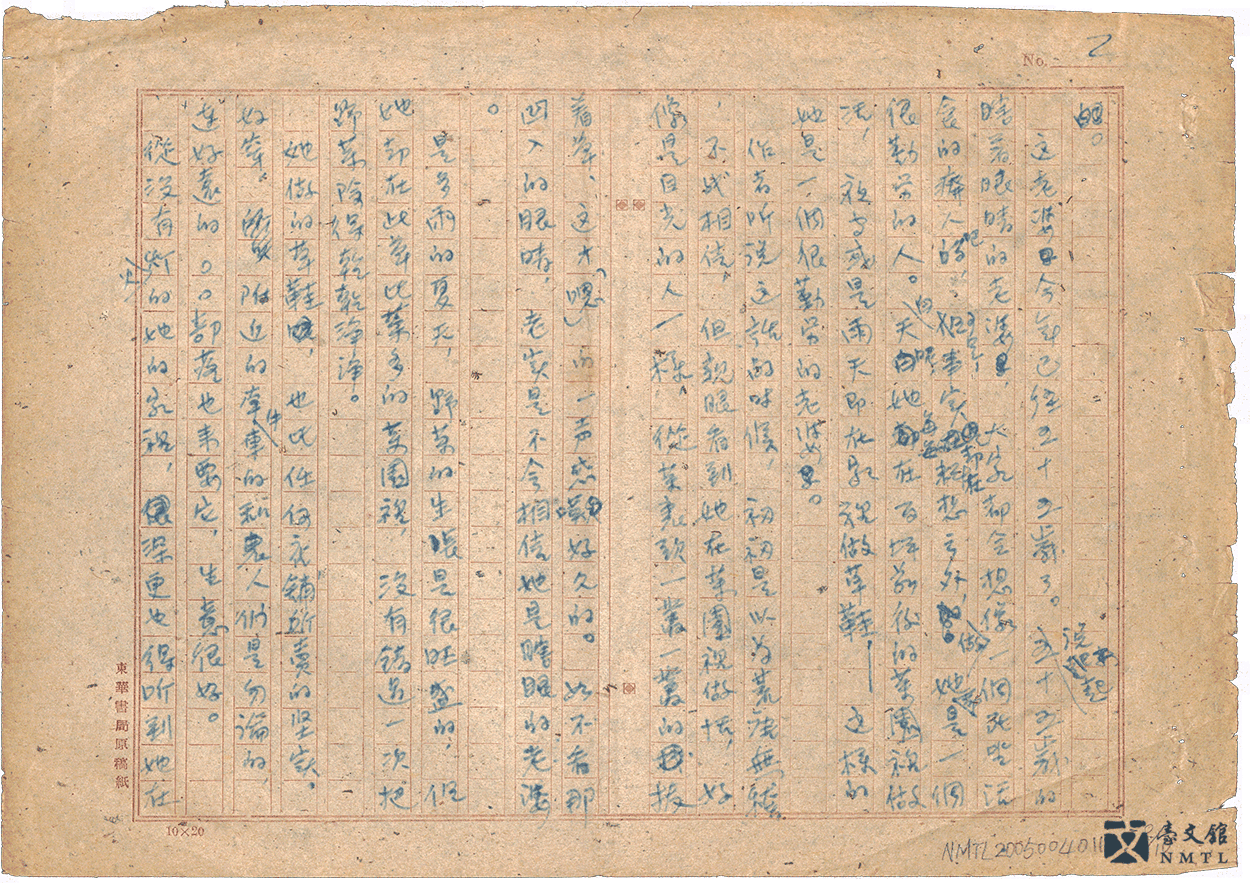 No. 2
。
這老婆今年已經五十五歲了。說起五十五歲的
瞎着眼睛的老婆,大家都會想像一個死坐活
食的癈人吧,但事實却在料想之外,她是一個
很勤勞的人。天她在百坪前後的菜園裡做
活,在家裡做草鞋,這樣的
她是一個很勤勞的老婆。
作者听說這話的时候,初初是以为荒唐無稽
,不或相信,但親眼看到她在菜園裡做活,好
像是目光的人一樣,從菜裏頭一叢一叢的拔
着草、這才「嗯」的一声感嘆好久的。如不看那
凹入的眼睛,老实是不会相信她是瞎眼的老婆
。
是多雨的夏天,野菜的生長是很旺盛的,但
她却在此草比菜多的菜園裡,沒有錯过一次把
野菜除得乾乾淨淨。
她做的草鞋,也比任何永鋪所賣的坚实。
好穿。附近的牛車的和農人們是勿論的,
連好遠的○○部落也来買它,生意很好。
從沒有灯火的她的家裡,深更也得听到她在
東華書局原稿紙
10×20
NMTL200500401
臺文館
NMTL